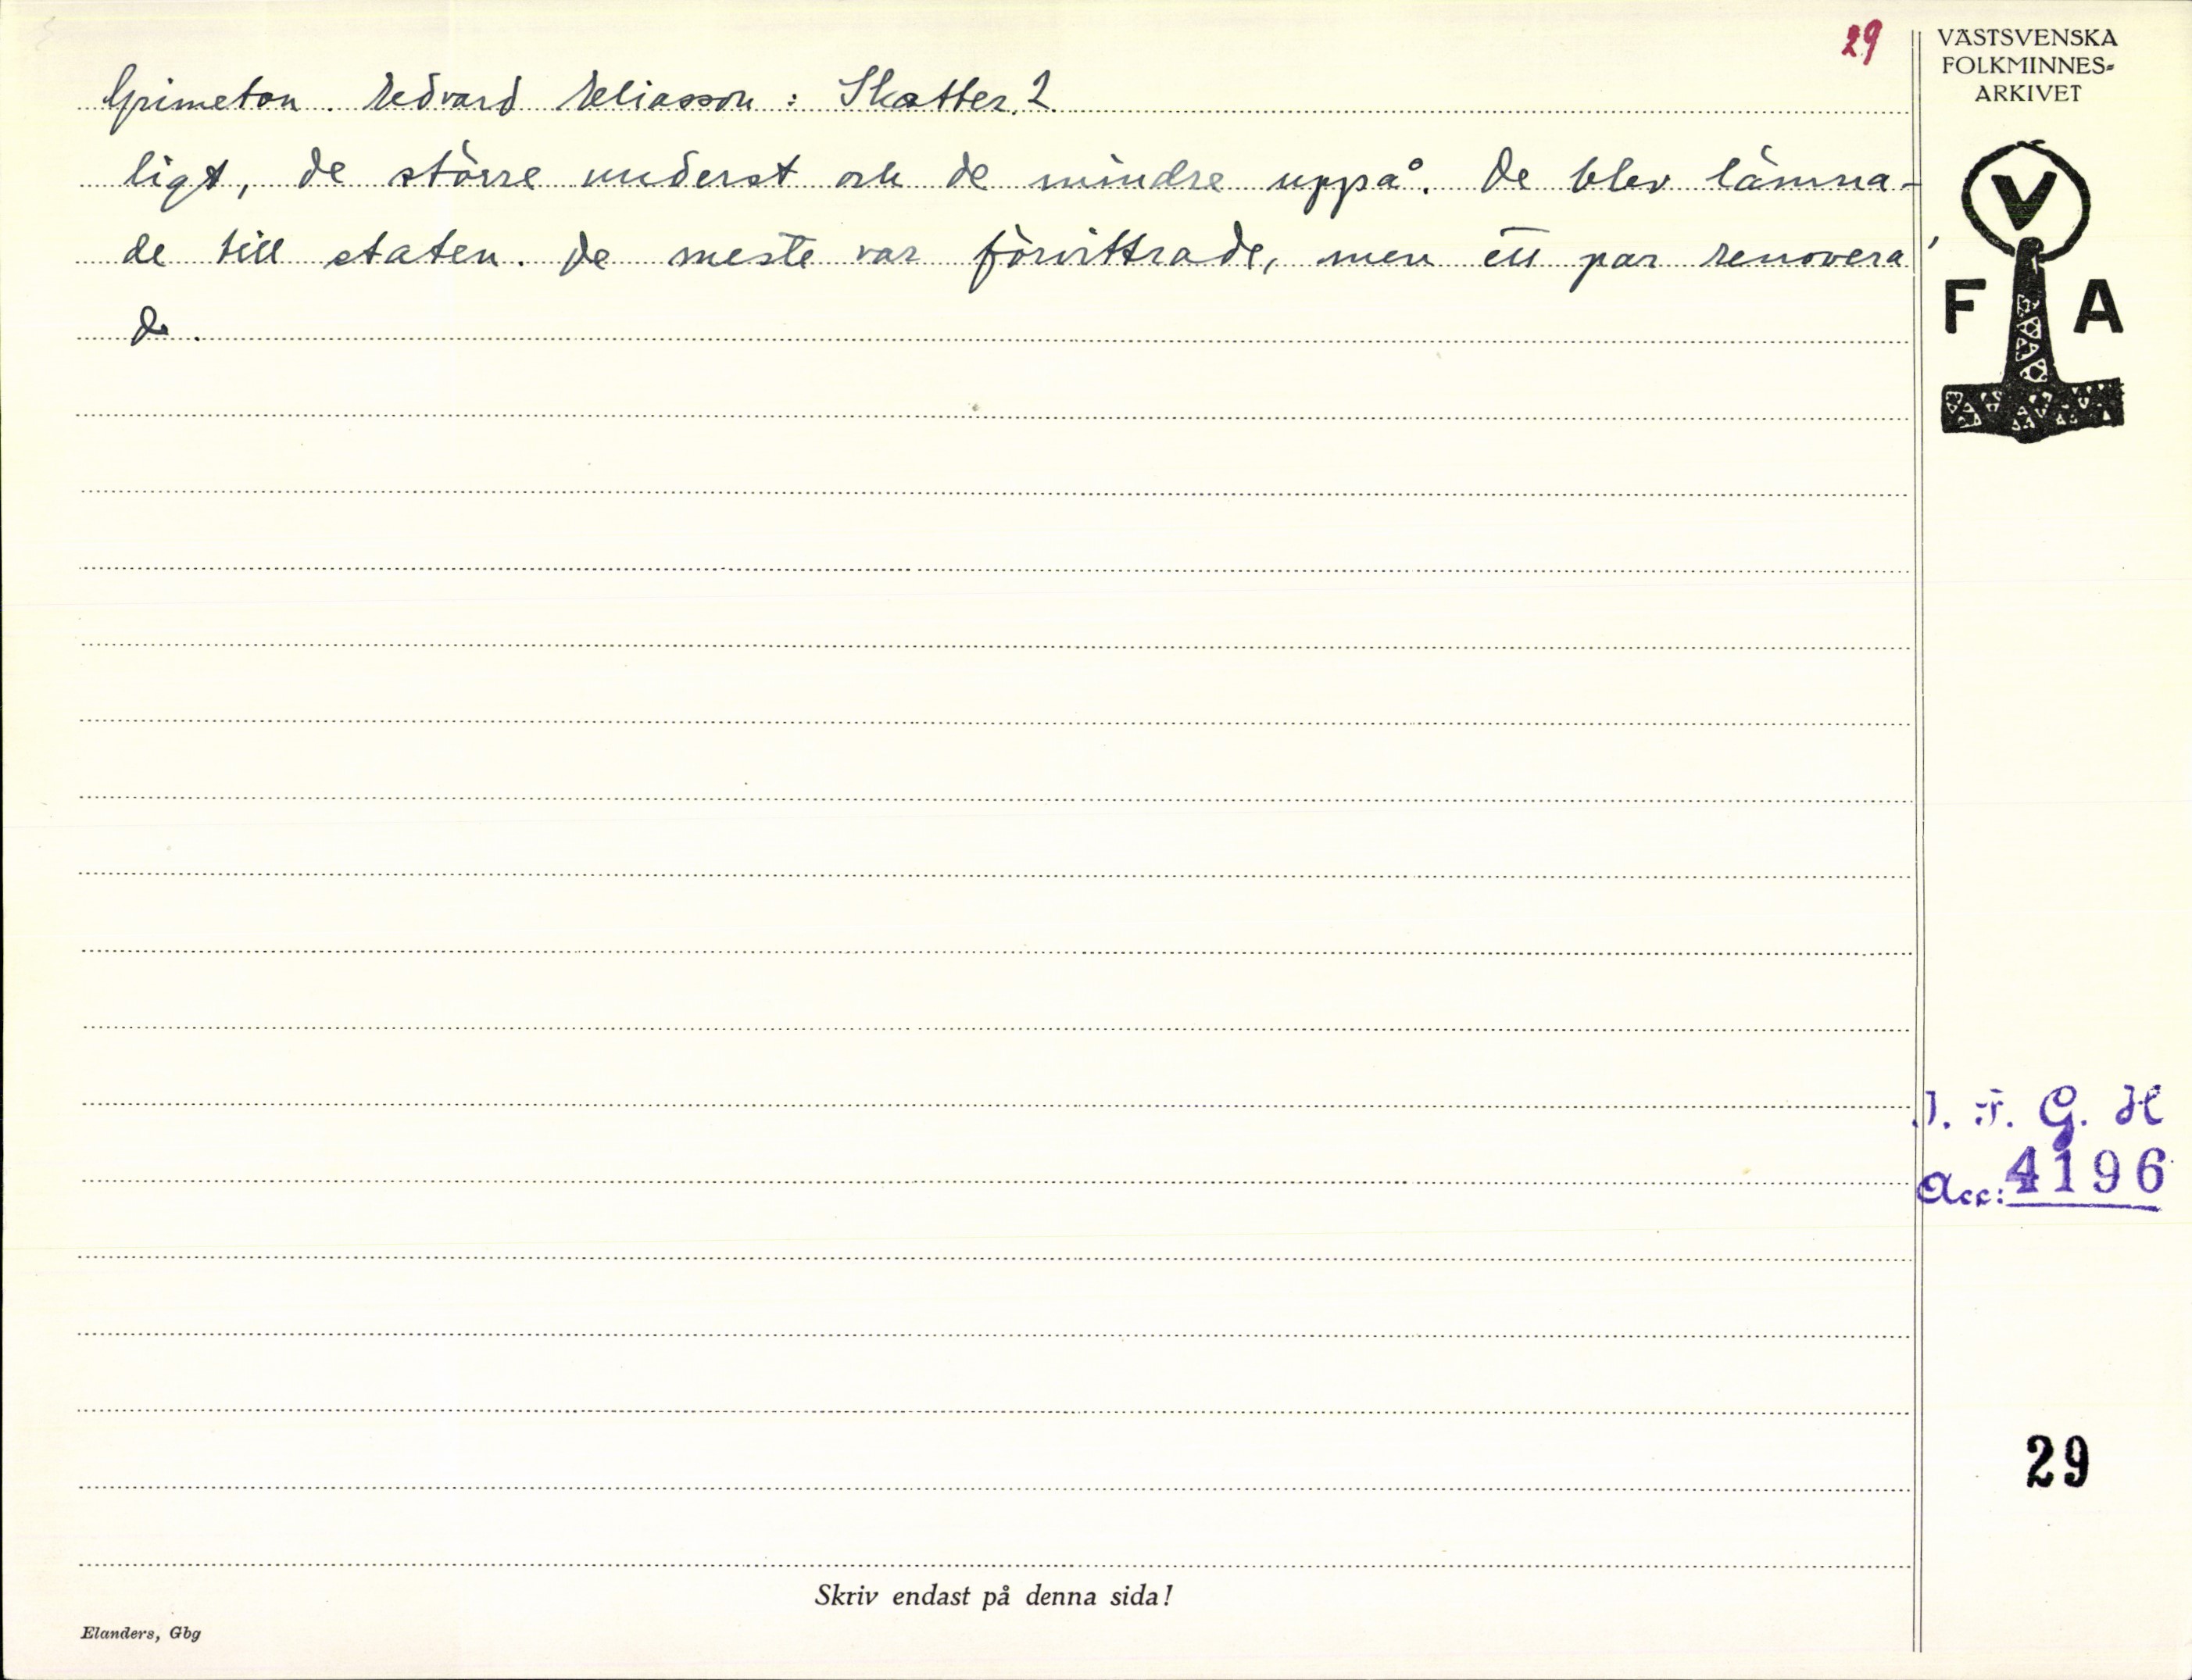 29
VÄSTSVENSKA
FOLKMINNES-
ARKIVET
Grimeton. Edvard Eliasson: Skatter. 2
ligt, de större underst och de mindre uppå. De blev lämna-
de till staten. De meste var förvittrade, men ett par renovera
de.
V
F A
I. F. G. H
Acc: 4196
29
Skriv endast på denna sida!
Elanders, Gbg